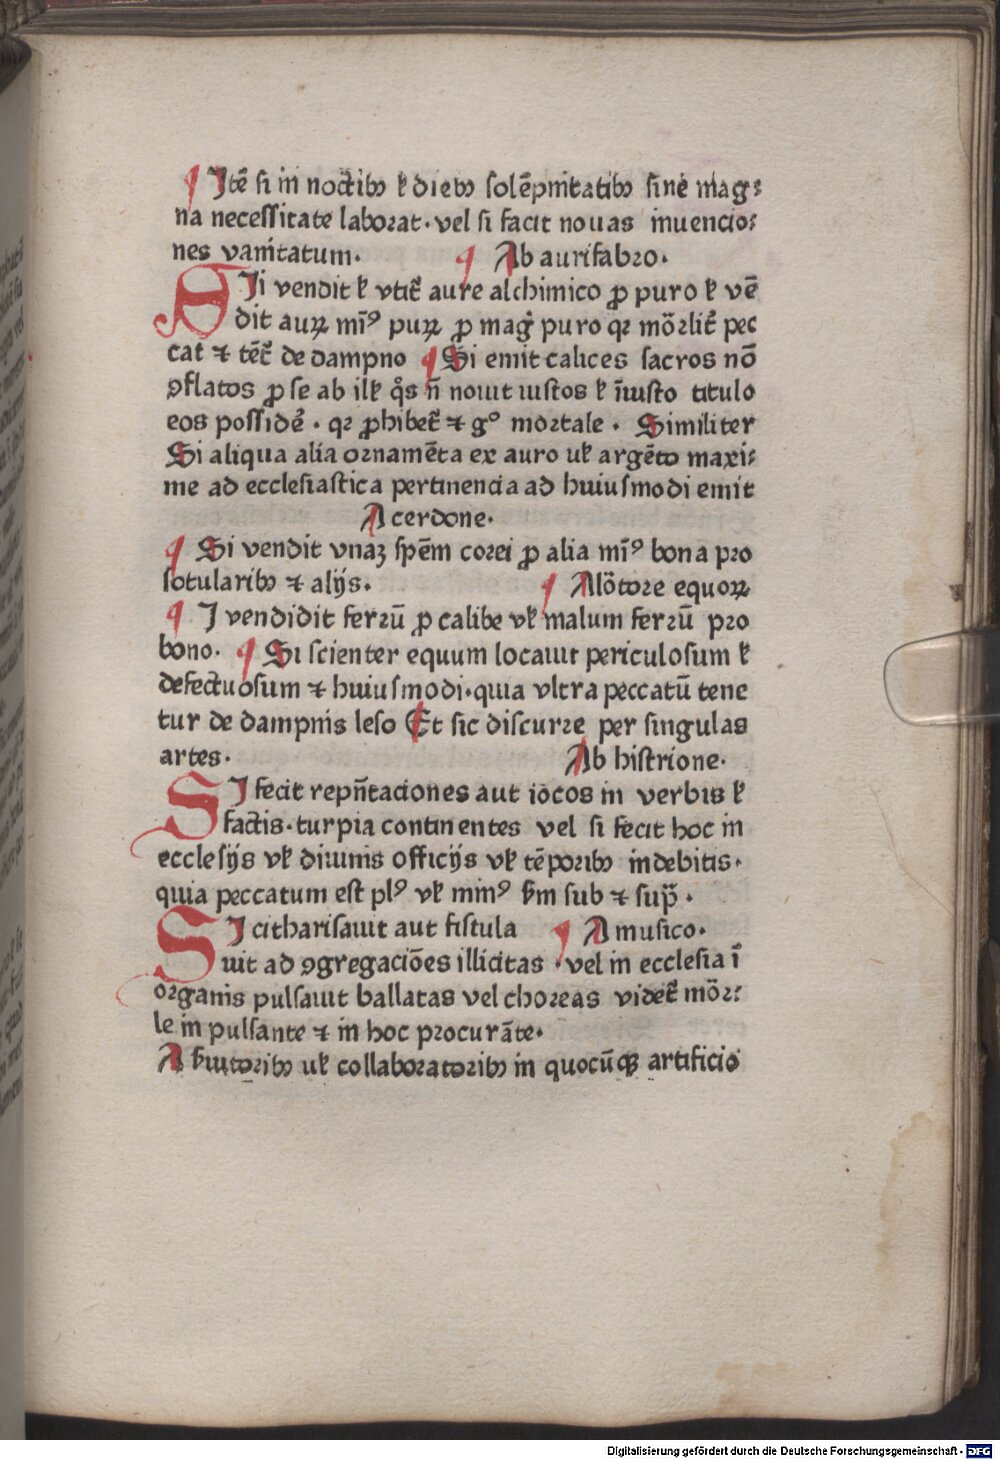 ¶ Itē si in noctibꝫ ꝉ diebꝫ solēpnitatibꝫ sine mag⸗
na necessitate laborat· vel si facit nouas inuencio⸗
nes vanitatum· ¶ Ab aurifabro·
SIi vendit ꝉ vtit̄ aure alchimico ꝓ puro ꝉ vē
dit auꝝ mī⁹ puꝝ ꝓ maġ puro qꝛ mōꝛlit̄ pec
cat ⁊ tēt̄ de dampno ¶ Si emit calices sacros nō
ꝯflatos ꝓ se ab ilꝉ qͦs n̄ nouit iustos ꝉ īiusto titulo
eos possidē̄· qꝛ ꝓhibet̄ ⁊ g° moꝛtale· Similiter
Si aliqua alia oꝛnamēta ex auro uꝉ argēto maxi⸗
me ad ecclesiastica pertinencia ad huiusmodi emit
A cerdone·
¶ Si vendit vnaꝫ spēm coꝛei ꝓ alia mī⁹ bona pꝛo
sotularibꝫ ⁊ alijs· ¶ A lōtoꝛe equoꝝ
¶ I vendidit ferꝛū ꝓ calibe vꝉ malum ferꝛū pꝛo
bono· ¶ Si scienter equum locauit periculosum ꝉ
defectuosum ⁊ huiusmodi· quia vltra peccatū tene
tur de dampnis leso Et sic discurꝛe per singulas
artes· Ab histrione·
SI fecit repn̄taciones aut iocos in verbis ꝉ
factis· turpia continentes vel si fecit hoc in
ecclesijs vꝉ diuinis officijs vꝉ tēpoꝛibꝫ indebitis·
quia peccatum est pl⁹ vꝉ min⁹ ẜm sub ⁊ sup̄·
SI citharisauit aut fistula ¶ A musico·
uit ad ꝯgregaciōes illicitas· vel in ecclesia ī
oꝛganis pulsauit ballatas vel choreas videt̄ mōꝛ⸗
le in pulsante ⁊ in hoc procurāte·
A ẜuitoꝛibꝫ uꝉ collaboꝛatoꝛibꝫ in quocūqꝫ artificio
Digitalisierung gefördert durch die Deutsche Forschungsgemeinschaft - DFG